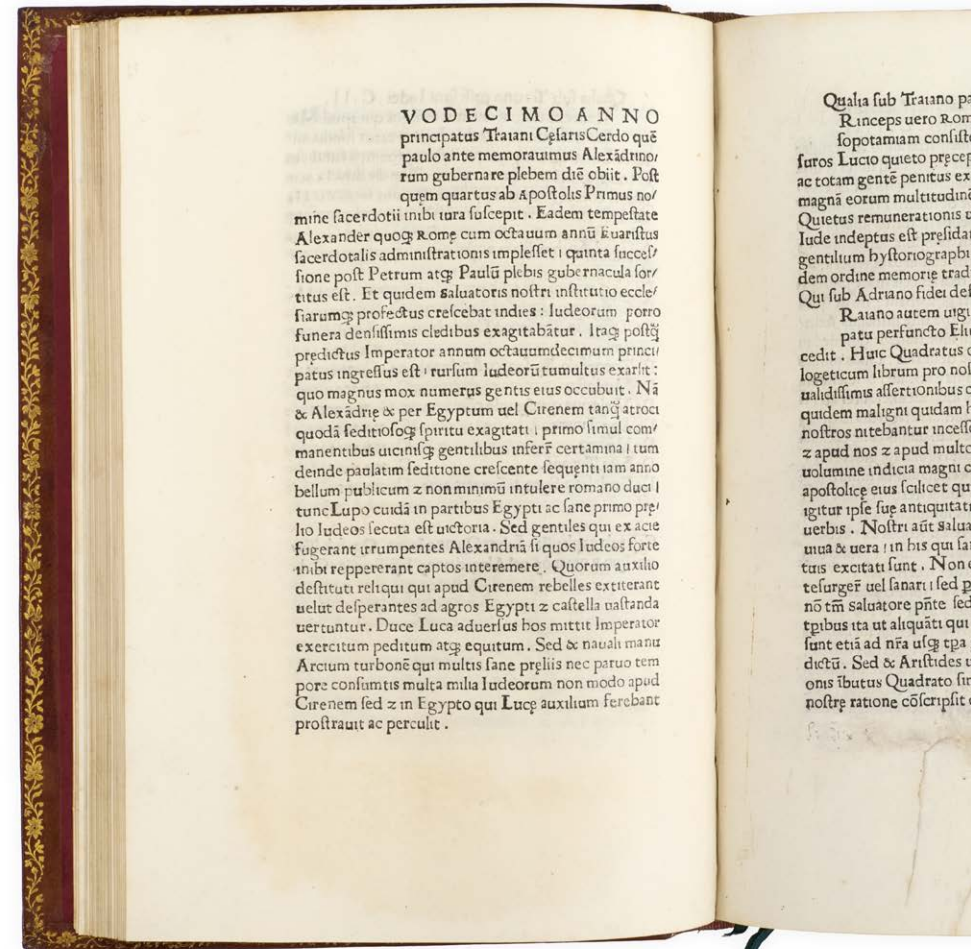 VODECIMO ANNO
principatus Traiani CęſarisCerdo quē
paulo ante memorauimus Alexādrino/
rum gubernare plebem diē obiit. Poſt
quem quartus ab Apoſtolis Primus no/
mine ſacerdotii inibi iura ſuſcepit. Eadem tempeſtate
Alexander quoqȝ Romę cum octauum annū Euariſtus
ſacerdotalis adminiſtrationis impleſſet ι quinta ſucceſ/
ſione poſt Petrum atqȝ Paulū plebis gubernacula ſor/
titus eſt. Et quidem Saluatoris noſtri inſtitutio eccle/
ſiarumqȝ profectus creſcebat indies: Iudeorum porro
funera denſiſſimis cledibus exagitabātur. Itaqȝ poſtq̄
predictus Imperator annum octauumdecimum princi/
patus ingreſſus eſt ι rurſum Iudeorū tumultus exarſit:
quo magnus mox numerus gentis eius occubuit. Nā
& Alexādrię & per Egyptum uel Cirenem tanq̄ atroci
quodā ſeditioſoqȝ ſpiritu exagitati ι primo ſimul com/
manentibus uiciniſqȝ gentilibus inferr̄ certamina ι tum
deinde paulatim ſeditione creſcente ſequenti iam anno
bellum publicum z non minimū intulere romano duci ι
tunc Lupo cuidā in partibus Egypti ac ſane primo pre/
lio Iudeos ſecuta eſt uictoria. Sed gentiles qui ex acie
fugerant irrumpentes Alexandriā ſi quos Iudeos forte
inibi reppererant captos interemere. Quorum auxilio
deſtituti reliqui qui apud Cirenem rebelles extiterant
uelut deſperantes ad agros Egypti z caſtella uaſtanda
uertuntur. Duce Luca aduerſus hos mittit Imperator
exercitum peditum atqȝ equitum. Sed & nauali manu
Arcium turbonē qui multis ſane pręliis nec paruo tem
pore conſumtis multa milia Iudeorum non modo apud
Cirenem ſed z in Egypto qui Lucę auxilium ferebant
proſtrauit ac perculit.
Qualia ſub Traiano pa
Rinceps uero Rom
ſopotamiam conſiſte
ſuros Lucio quieto pręcep
ac totam gentē penitus ex
magnā eorum multitudinē
Quietus remunerationis u
Iude indeptus eſt pręſidat
gentilium hyſtoriographi
dem ordine memorię trad
Qui ſub Adriano fidei def
Raiano autem uigi
patu perfuncto Eliu
cedit. Huic Quadratus o
logeticum librum pro noſ
ualidiſſimis aſſertionibus c
quidem maligni quidam h
noſtros nitebantur inceſſe
z apud nos z apud multo
uolumine indicia magni c
apoſtolicę eius ſcilicet qu
igitur ipſe ſuę antiquitati
uerbis. Noſtri aūt Salua
uiua & uera ι in his qui ſan
tuis excitati ſunt. Non e
teſurger̄ uel ſanari ι ſed p
nō tm̄ ſaluatore pn̄te ſed
tpibus ita ut aliquāti qui
ſunt etiā ad nr̄a uſqȝ tpa
dictū. Sed & Ariſtides u
onis ībutus Quadrato ſin
noſtrę ratione cōſcripſit